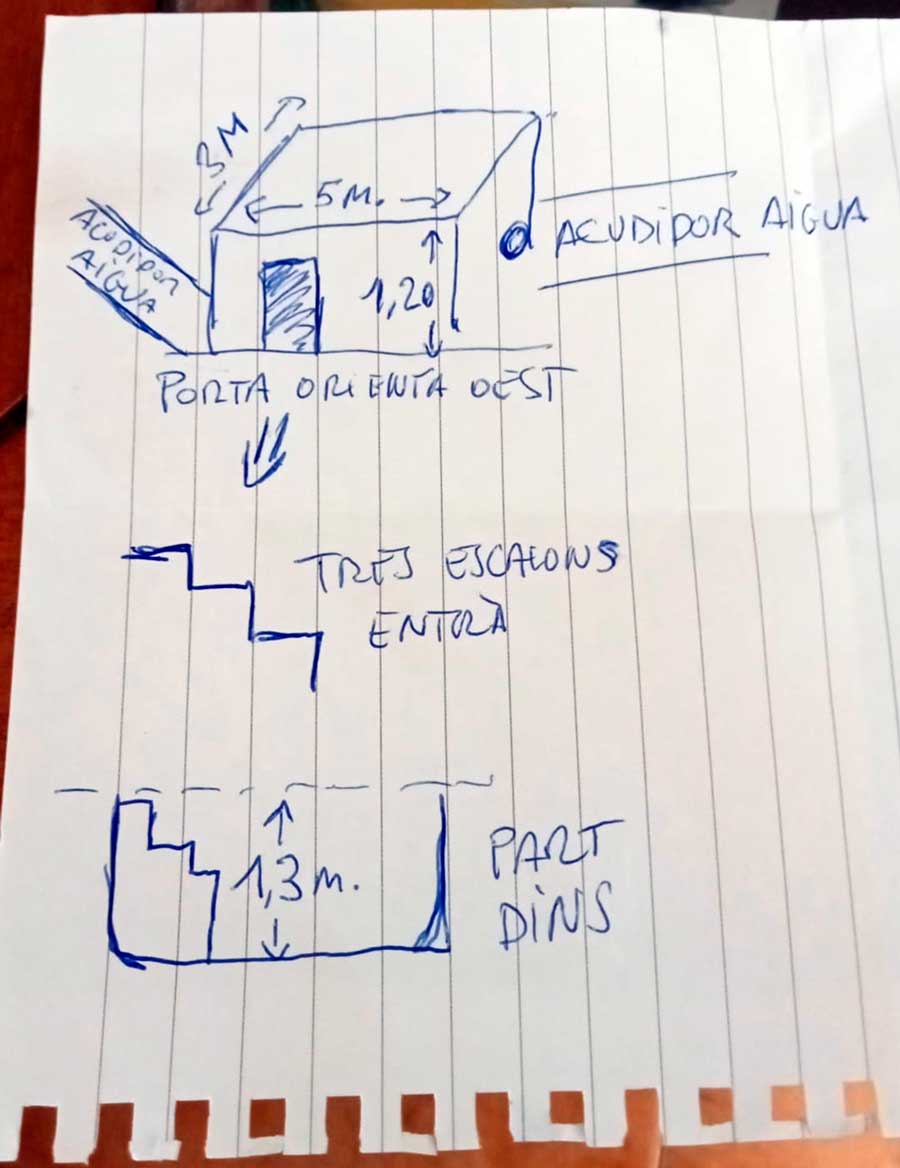 3M
5M.
ACUDIDOR
AÏGUA
ACUDIDOR AÏGUA
1,20
PORTA ORIENTA OEST
TRES ESCALONS
ENTRÀ
1,3 m.
PART
DINS